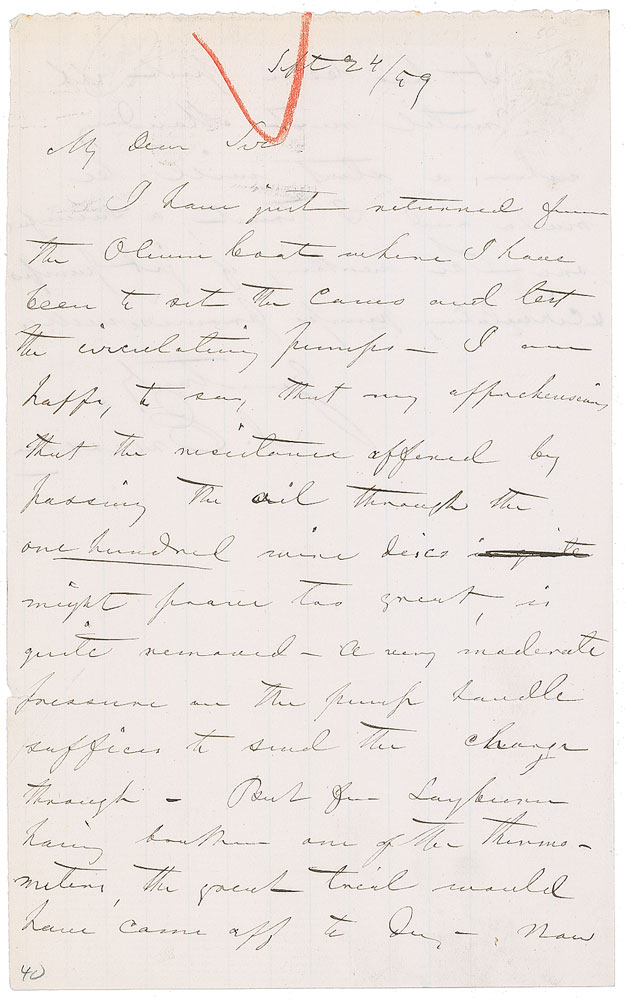 Sept 24/59
My Dear Sir
I have just returned from
the Oleum boat where I have
been to set the cames and test
the circulating pumps — I am
happy, to say that my apprehensions
that the resistance offered by
passing the oil through the
one hundred wire discs is quite
might prove too great, is
quite removed — a very moderate
pressure on the pump handle
suffices to send the charge
through — But for Laybourn
having broken one of the thermo-
meters, the great trial would
have came off to Day — Now
40